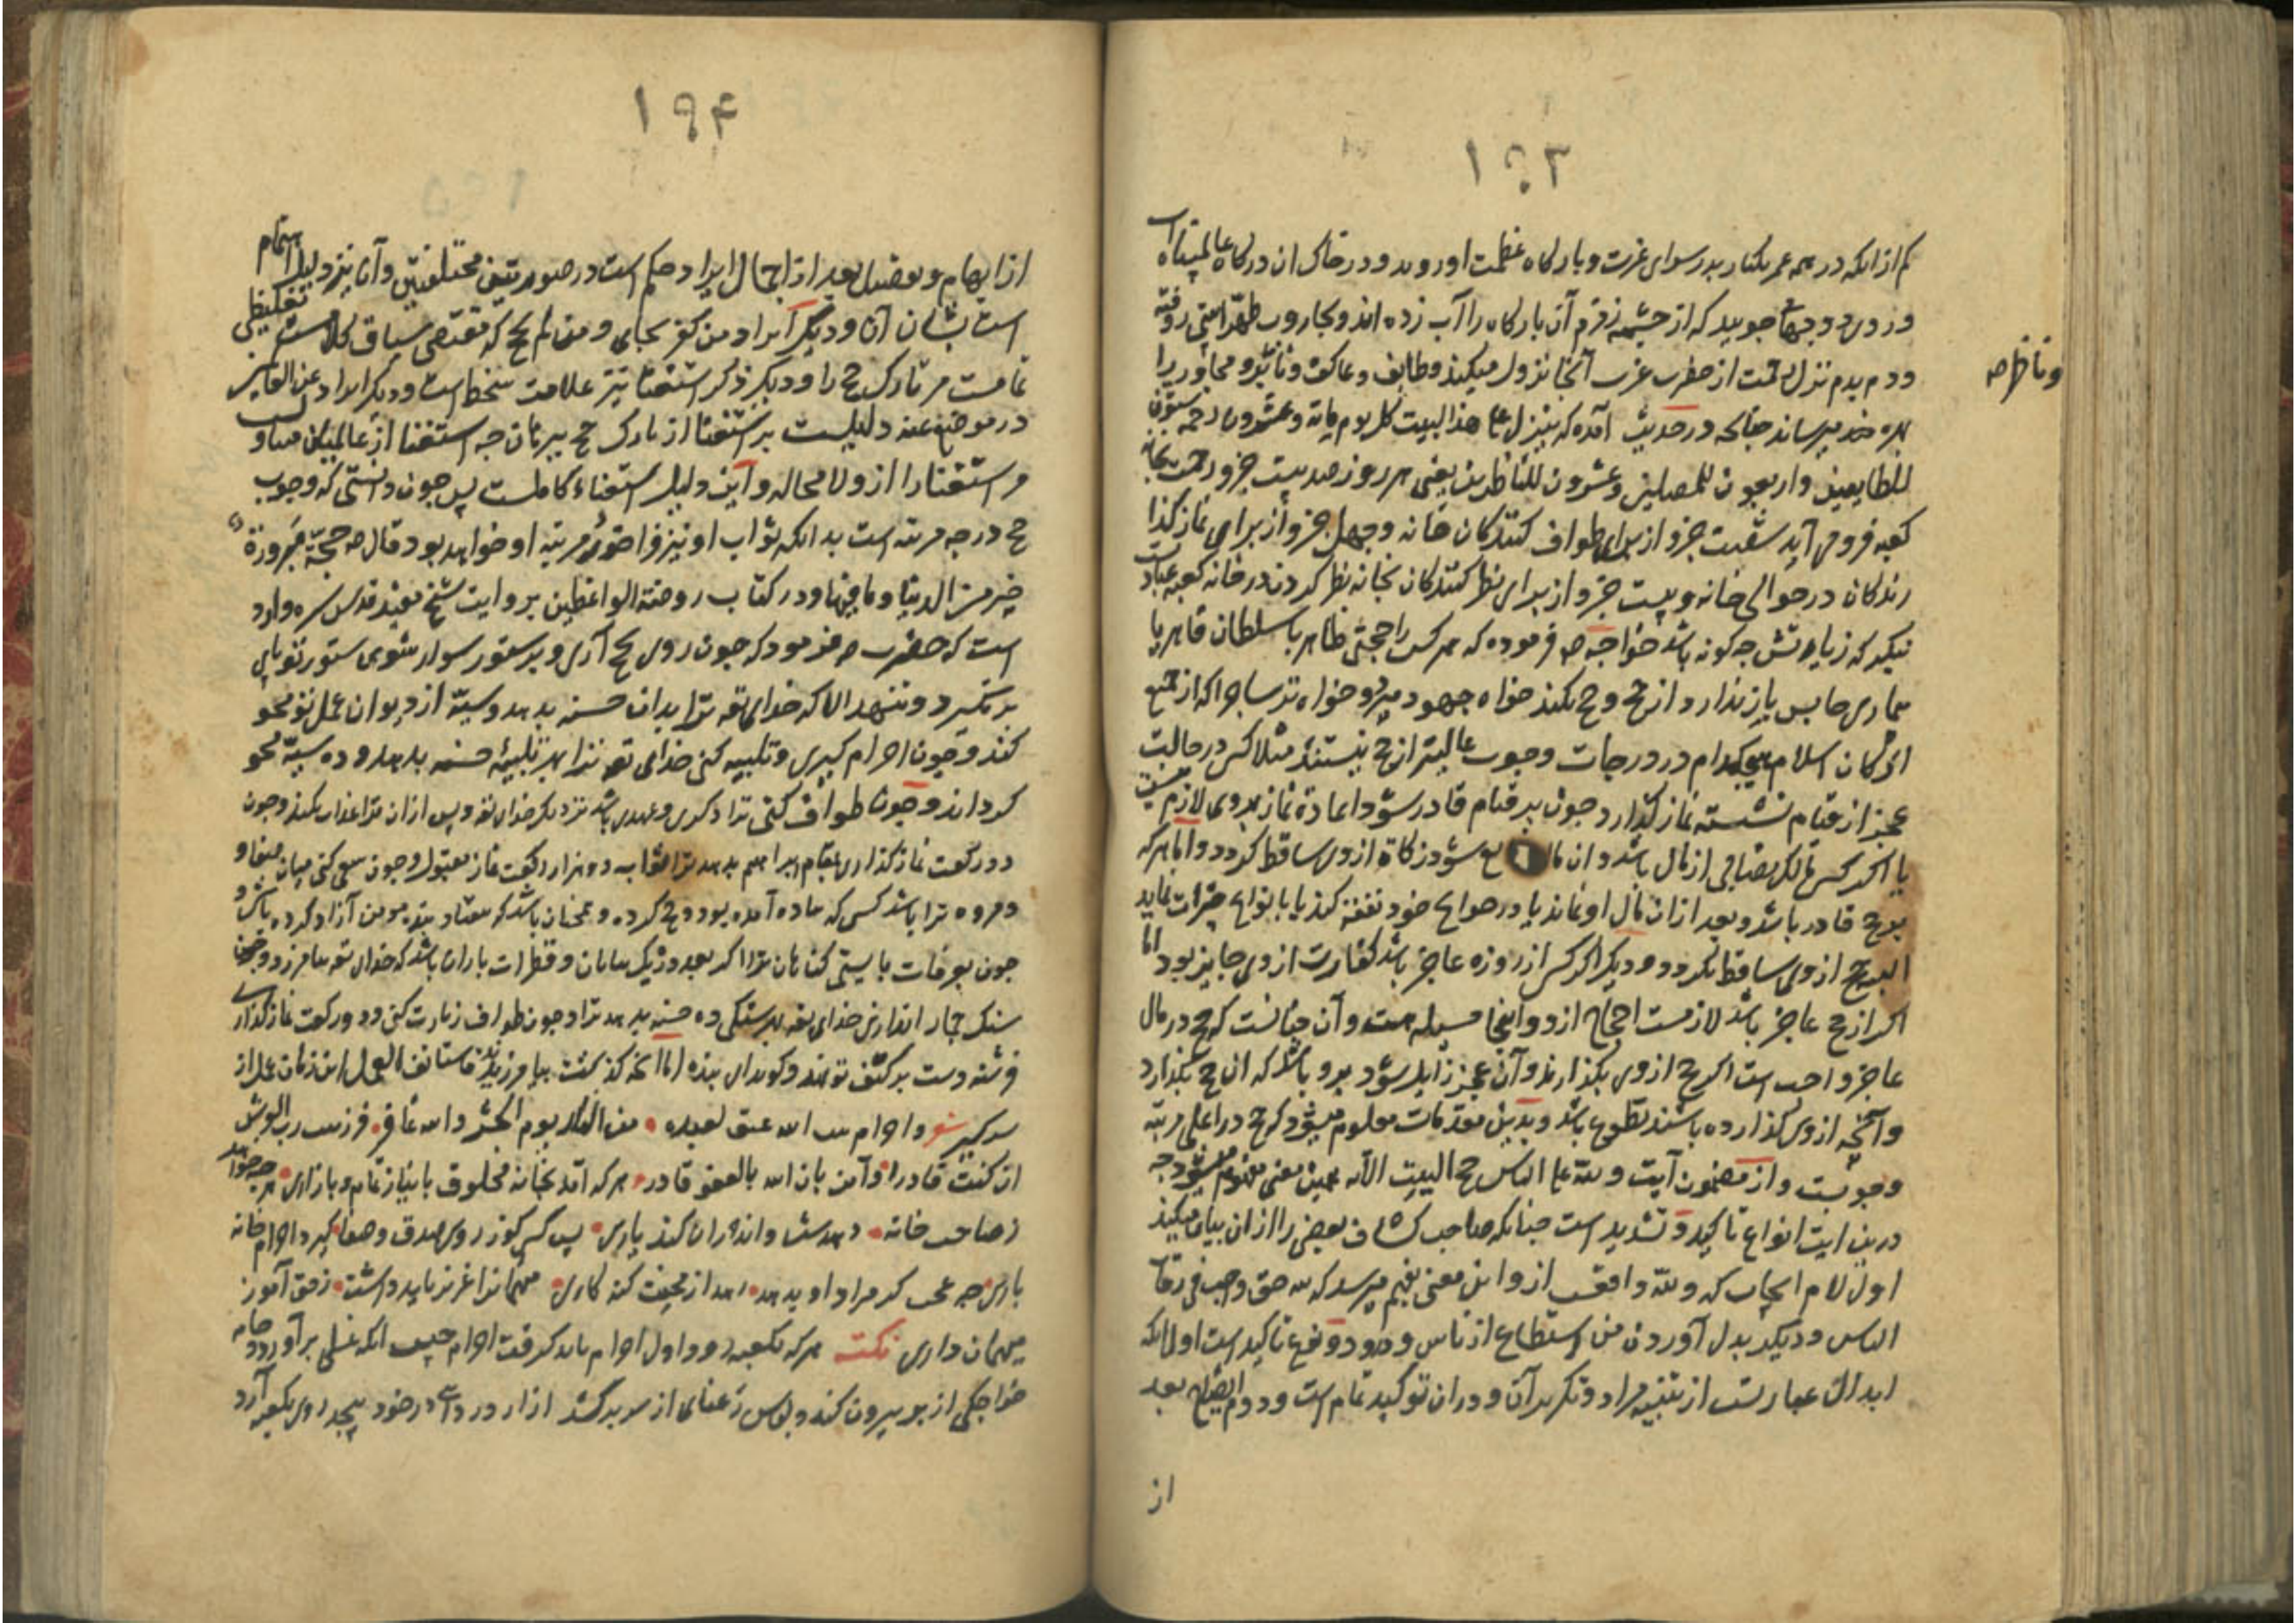 ۱۹۳
کم از انکه در همه عمر یکبار بدر سوای عزت و بارکاه عظمت او روید و در خاک ان درکاه عالمپناه
و روی و جهات جویید که از چشمه زمزم آن بارکاه را آب زده اند و بجاروب طهّرا بیتی رفته
و دم بدم نزل رحمت از حضرت عزت آنجا نزول میکند و طایف و عاکف و زائر و مجاور را
وناظر صح
بهره میرساند چنانکه در حدیث آمده که ینزل علی هذا البیت کل یوم مایة و عشرون رحمه ستون
للطایفین و اربعون للمصلین و عشرون للناظرین یعنی هر روز صد بیست جزو رحمت بخانه
کعبه فرو می آید شصت جزو از برای طواف کنندکان خانه و چهل جزو از برای نماز کذا
رندکان در حوالی خانه و بیست جزو از برای نظر کنندکان بخانه نظر کردن در خانه کعبه عبادت
نیکید که زیارتش چه کونه باشد خواجه ص فرموده که هر کس را حجتی ظاهر یا سلطان قاهر یا
بیماری حابس باز ندارد از حج و حج نکند خواه جهود میرد خواه ترسا چرا که از جمیع
ارکان اسلام هیچکدام در درجات وجوب عالیتر از حج نیستند مثلا کس در حالت
عجز از قیام نشسته نماز کذارد چون بر قیام قادر شود اعادة نماز بروی لازم نیست
یا اکر کس مالک نصابی از مال باشد و ان مال ع شود زکاة از وی ساقط کردد و اما هر که
بر حج قادر باشد و بعد از ان مال او نماند یا در حوایج خود نفقه کند یا بانواع خیرات نماید
البته حج از وی ساقط نکردد و دیکر اکر کس از روزه عاجز باشد کفارت از وی جایز بود اما
اکر از حج عاجز باشد لازمست احجاج ازو و اینجا مسیله هست و آن چنانست که حج در مال
عاجز واجب است اکر حج از وی بکذارند و آن عجز زایل شود برو باشد که ان حج بکذارد
و آنچه از وی کذارده باشند تطوع باشد و بدین مقدمات معلوم میشود که حج در اعلی مرتبه
وجوبست و از مضمون آیت ولله علی الناس حج البیت الآیه همین معنی مفهوم میشود چه
درین ایت انواع تاکید و تشدید است چنانکه صاحب کشاف بعضی را از ان بیان میکند
اول لام ایجاب که ولله واقعست ازو این معنی بفهم میرسد که لله حق واجب فی رقاب
الناس و دیکر بدل آوردن من استطاع از ناس و درو دو نوع تاکید است اول انکه
ابدال عبارتست از تثنیه مراد و تکریر آن و در ان توکید تمام است و دوم ایضاح بعد
از
۱۹۴
از ابهام و تفصیل بعد از اجمال ایراد حکم است در صورتین مختلفتین و آن نیز دلیل اهتمام
است بشان آن و دیکر ایراد من کفر بجای و من لم یحج که مقتضی سیاق کلامست تغلیظی
تمامست مر تارک حج را و دیکر ذکر استغنا نیز علامت سخط است و دیکر ایراد عن العالمین
در موضع عنه دلیلیست بر استغنا از تارک حج ببرهان چه استغنا از عالمیان متناول است
مر استغنا را ازو لا محاله و این دلیل استغناء کاملست پس چون دانستی که وجوب
حج در چه مرتبه است بدانکه ثواب او نیز فراخور مرتبه او خواهد بود قال ص حجّة مبرورة
خیر من الدنیا و ما فیها و در کتاب روضة الواعظین بروایت شیخ مفید قدس سره وارد
است که حضرت ص فرمود که چون روی بحج آری و بر ستور سوار شوی ستور تو پای
بر نکیرد و ننهد الا که خدای تع ترا بدان حسنه بدهد و سیئه از دیوان عمل تو محو
کند و چون احرام کیری و تلبیه کنی خدای تع ترا بهر تلبیه حسنه بدهد و ده سیئه محو
کرداند و چون طواف کنی ترا ذکری و عهدی باشد نزدیک خدای تع و پس ازان ترا عذاب نکند و چون
دو رکعت نماز کذاری بمقام ابراهیم بدهد ترا ثواب دو هزار رکعت نماز مقبول و چون سعی کنی میان صفا و
مروه ترا باشد کسی که پیاده آمده بود و حج کرده و همچنان باشد که هفتاد بنده مومن آزاد کرده باشی و
چون بعرفات بایستی کناهان ترا اکر بعدد ریک بیابان و قطرات باران باشد که خدای تع بیامرزد و چون
سنک جمار اندازی خدای تع بهر سنکی ده حسنه بدهد ترا و چون طواف زیارت کنی و دو رکعت نماز کذاری
فرشته دست بر کتف تو نهد و کوید ای بنده اما انچه کذشت بیامرزیدند فاستانف العمل این زمان عمل از
سر کیر شعر
ان کنت قادرا وآمن بان الله بالعفو قادر هر که آمد بخانه مخلوق با نیاز تمام و با زاری هر چه خواهد
ز صاحب خانه دهدش و اندران کند یاری پس کسی کوز روی صدق و صفا کیرد احرام خانه
باری چه عجب کر مراد او بدهد مهمانرا عزیز باید داشت زحق آموز
میهمان داری نکته هر که بکعبه رود اول احرام باید کرفت احرام چیست انکه غسلی برآورد و جامه
خواجکی از بر بیرون کند و لباس رعنای از سر برکشد ازار و ردا در خود پیچد روی بکعبه آرد